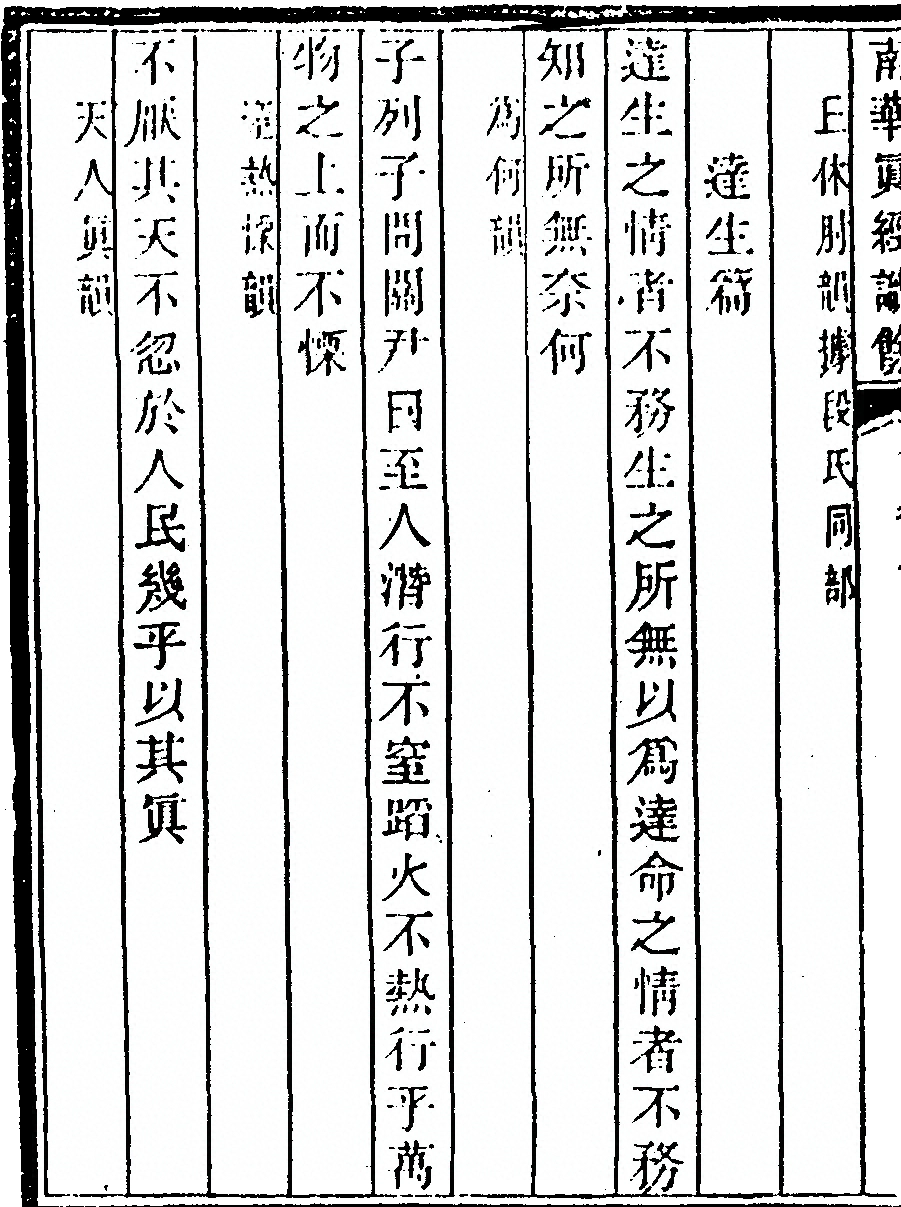 南華眞經識餘
丘休肘韻據段氏同部
達生篇
達生之情者不務生之所無以爲達命之情者不務
知之所無奈何
爲何韻
子列子問關尹曰至人潛行不窒蹈火不熱行乎萬
物之上而不慄
窒熱慄韻
不厭其天不忽於人民幾乎以其眞
天人眞韻